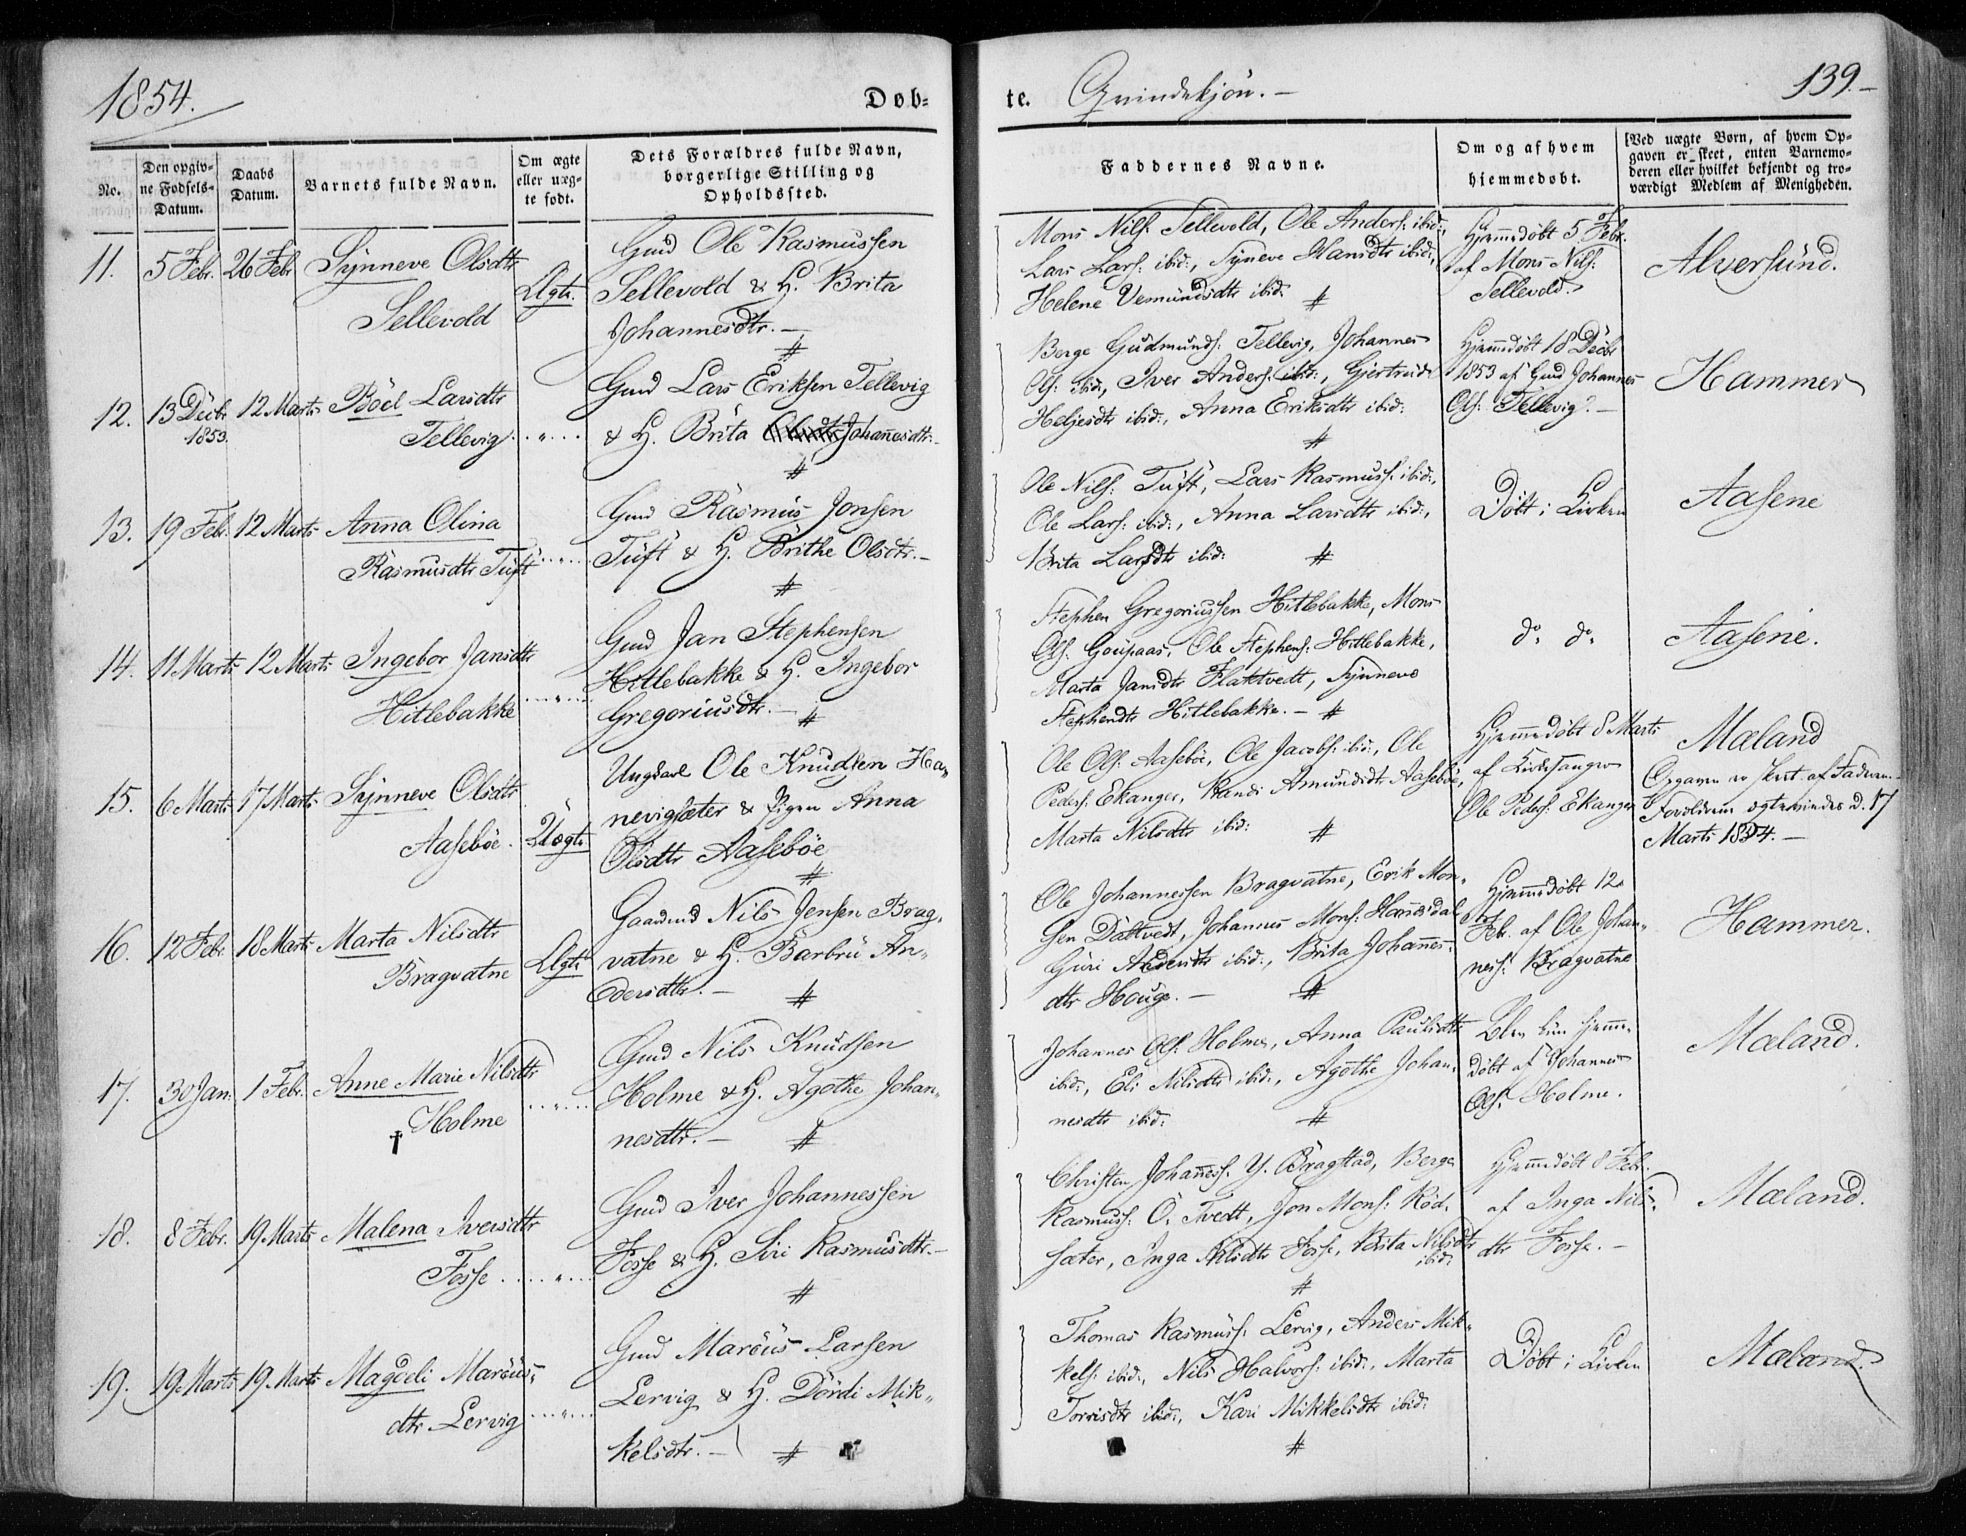 1854.
Døb-
te. Qvindekjön.-
139.-
No.
Den opgiv-
ne Fødsels-
Datum.
Daabs
Datum.
Barnets fulde Navn.
Om ægte
eller uæg-
te født.
Dets Forældres fulde Navn,
borgerlige Stilling og
Opholdssted.
Faddernes Navne.
Om og af hvem
hjemmedøbt.
[Ved uægte Børn, af hvem Op-
gaven er skeet, enten Barnemo-
deren eller hvilket bekjendt og tro-
værdigt Medlem af Menigheden.
11. 5 Febr. 26 Febr Synneve Olsdtr
Sellevold
Ægte.
Gmd Ole Rasmussen
Sellevold & H. Brita
Johannesdtr.-
Mons Nils: Sellevold, Ole Anders: ibid:,
Lars Lars: ibid:, Syneve Hansdtr ibid:,
Helene Vemundsdtr ibid: #
Hjemmedøbt 5 Febr.
af Mons Nils:
Sellevold.
Alversund.
12. 13 Decbr 1853. 12 Marts Böel Larsdtr
Tellevig
Gmd Lars Eriksen Tellevig
& H. Brita Johannesdtr.-
Berge Gudmunds: Tellevig, Johannes
Ols: ibid:, Iver Anders: ibid:, Gjertrud
Heljesdtr ibid:, Anna Eriksdtr ibid:
#
Hjemmedøbt 18 Decbr
1853 af Gmd Johannes
Ols: Tellevig.-
Hammer
13. 19 Feb: 12 Marts Anna Olina
Rasmusdtr Tuft
Gmd Rasmus Jonsen
Tuft & H. Brithe Olsdtr.-
#
Ole Nils: Tuft, Lars Rasmuss: ibid:,
Ole Lars: ibid:, Anna Larsdtr ibid:,
Brita Larsdtr ibid: #
Döbt i Kirken
Aasene
14. 11 Marts 12 Marts Ingebor Jansdtr
Hitlebakke
Gmd Jan Stephensen
Hitlebakke & H. Ingebor
Gregoriusdtr.- #
Stephen Gregoriussen Hitlebakke, Mons
Ols: Goupaas, Ole Stephens: Hitlebakke,
Marta Jansdtr Flaktvedt, Synneve
Stephensdtr Hitlebakke.- #
do do
Aasene.
15. 6 Marts 17 Marts Synneve Olsdtr
Aaseböe.
Uægte
Ungkarl Ole Knudsen Ha-
nevigsæter & Pigen Anna
Olsdtr Aaseböe
#
Ole Ols: Aaseböe, Ole Jacobs: ibid:, Ole
Peders: Ekanger, Randi Amundsdtr Aaseböe,
Marta Nilsdtr ibid: #
Hjemmedøbt 8 Marts
af Kirkesanger
Ole Peders: Ekanger
Mæland
Opgaven er skeet af Faderen.
Forældrene ægteviedes d. 17
Marts 1854.-
16. 12 Febr. 18 Marts Marta Nilsdtr
Bragvatne
Ægte
Gaardmd Nils Jensen Brag-
vatne & H. Barbrü An-
dersdtr.- #
Ole Johannessen Bragvatne, Erik Mon-
sen Dattvedt, Johannes Mons: Hannisdal
Guri Andersdtr ibid:, Brita Johannes-
dtr Houge.- #
Hjemmedøbt 12
Feb. af Ole Johan-
ness: Bragvatne
Hammer.
17. 30 Jan. 1 Febr. Anne Marie Nilsdtr
† Holme
Gmd Nils Knudsen
Holme & H. Agothe Johan-
nesdtr.- #
Johannes Ols: Holme, Anna Paulsdtr
ibid:, Eli Nilsdtr ibid:, Agothe Johan-
nesdtr ibid: #
Blev kun hjemme-
døbt af Johannes
Ols: Holme.
Mæland.
18. 8 Febr. 19 Marts Malena Iversdtr
Fosse
Gmd Iver Johannessen
Fosse & H. Siri Rasmusdtr.-
#
Christen Johanness: Y. Bragstad, Berge
Rasmuss: Ö. Tvedt, Jon Mons: Röd-
sæter, Inga Nilsdtr Fosse, Brita Nilsdtr
ibid:
#
Hjemmedøbt 8 Febr.
af Inga Nils-
dtr Fosse.-
Mæland.
19. 19 Marts 19 Marts Magdeli Marcus-
dtr Lervig
Gmd Marcus Larsen
Lervig & H. Dördi Mik-
kelsdtr.- #
Thomas Rasmuss: Lervig, Anders Mik-
kels: ibid:, Nils Halvors: ibid:, Marta
Torrisdtr ibid:, Kari Mikkelsdtr ibid:
#
Döbt i Kirken
Mæland.